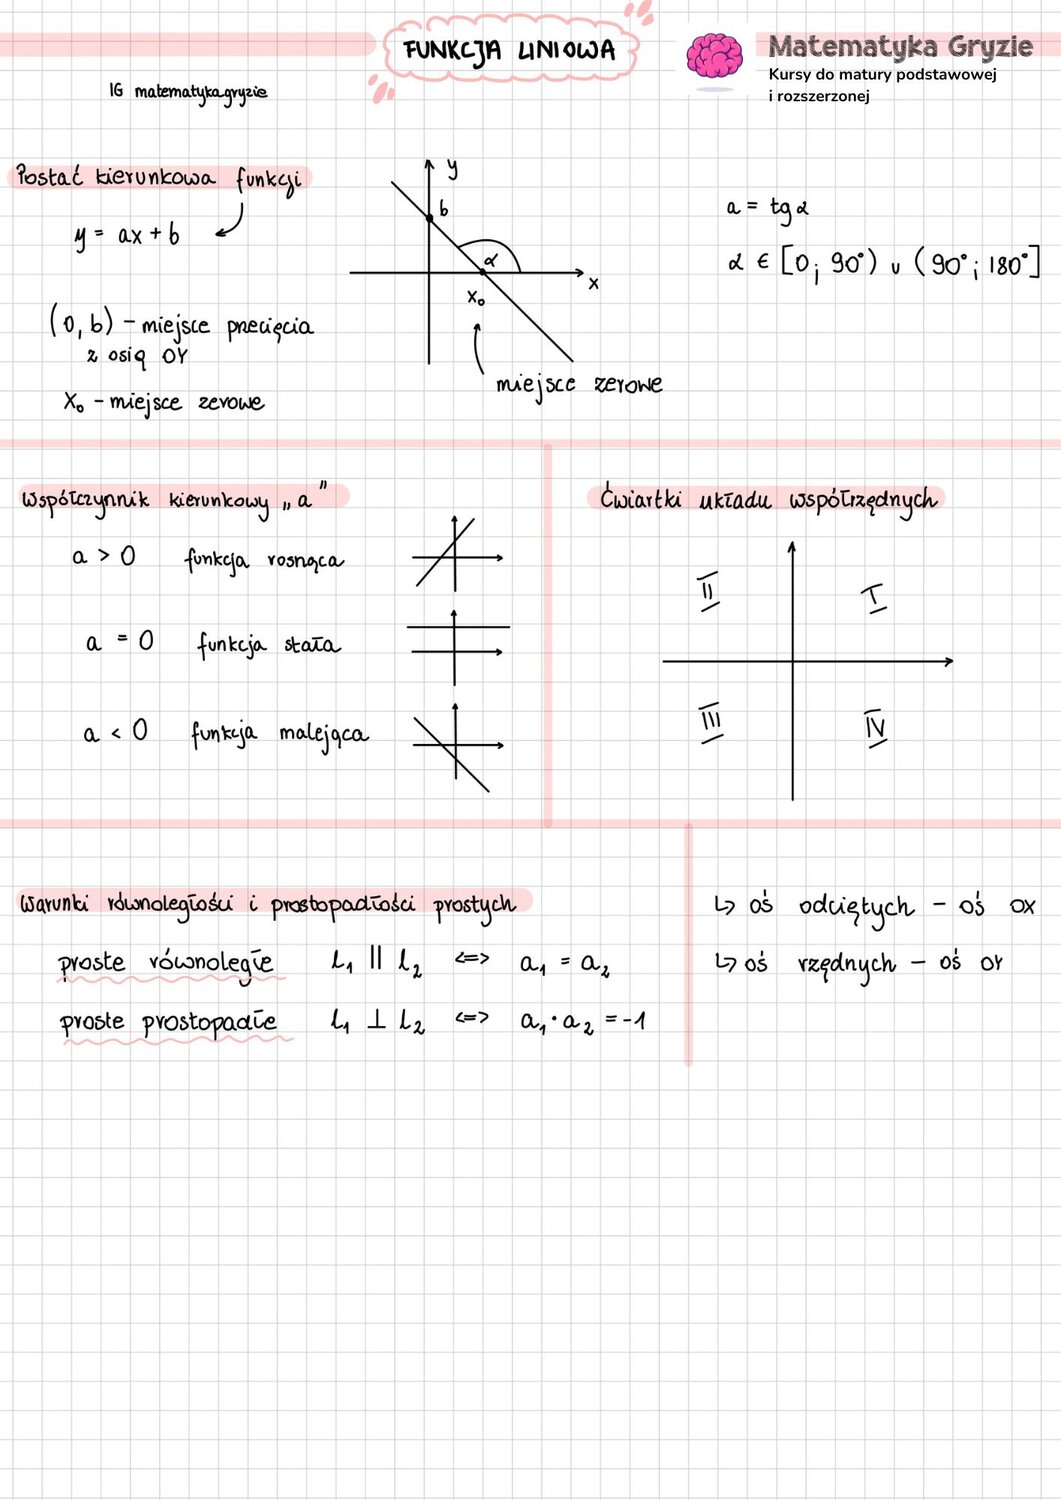 FUNKCJA LINIOWA
Matematyka Gryzie
Kursy do matury podstawowej
i rozszerzonej
IG matematykagryzie
Postać kierunkowa funkcji
y = ax + b
(0, b) - miejsce przecięcia
z osią OY
x₀ - miejsce zerowe
y
b
α
x
x₀
miejsce zerowe
a = tg α
α ∈ [0; 90°) ∪ (90°; 180°]
Współczynnik kierunkowy „a”
a > 0 funkcja rosnąca
a = 0 funkcja stała
a < 0 funkcja malejąca
Ćwiartki układu współrzędnych
II I
III IV
Warunki równoległości i prostopadłości prostych
proste równoległe l₁ || l₂ <=> a₁ = a₂
proste prostopadłe l₁ ⊥ l₂ <=> a₁ · a₂ = -1
↳ oś odciętych - oś OX
↳ oś rzędnych - oś OY